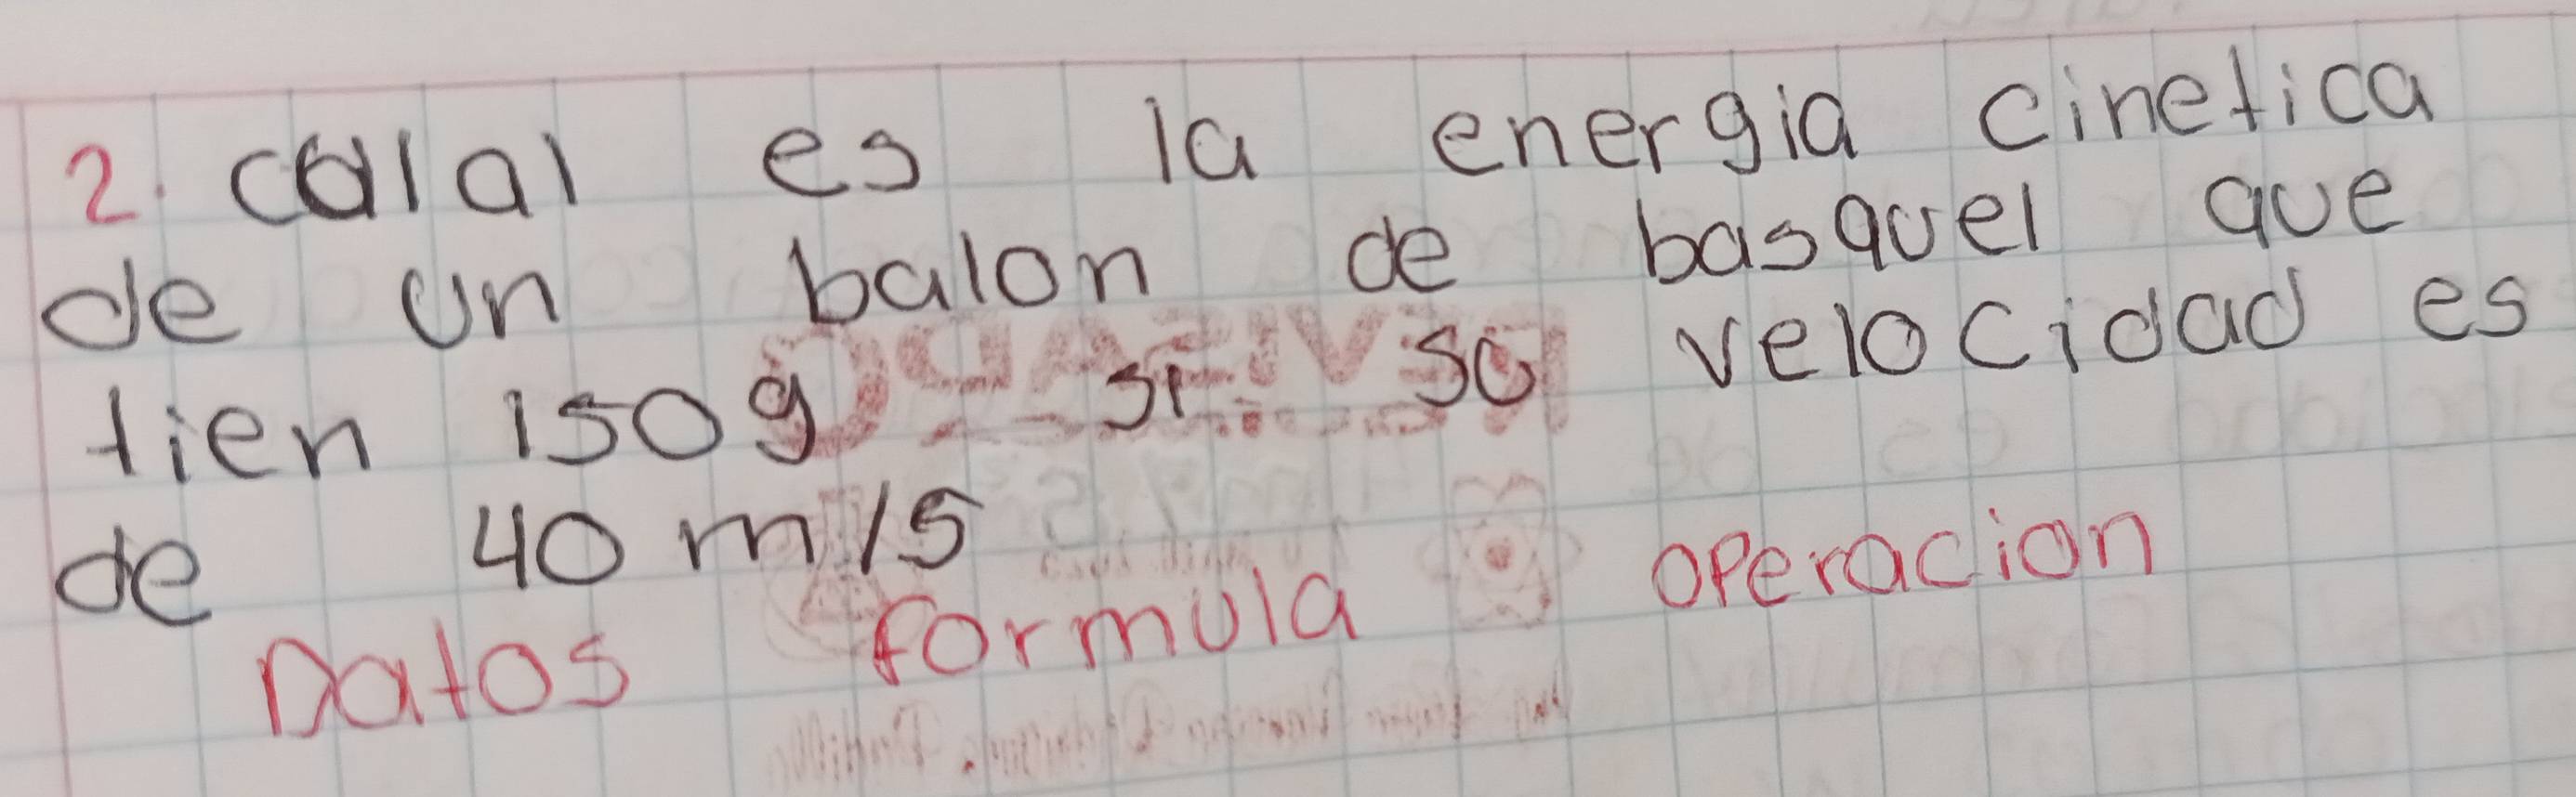 2. calal es la energia cinetica
de un balon de basquel que
tien 150g si su velocidad es
de 40 m/s
Datos formula operacion